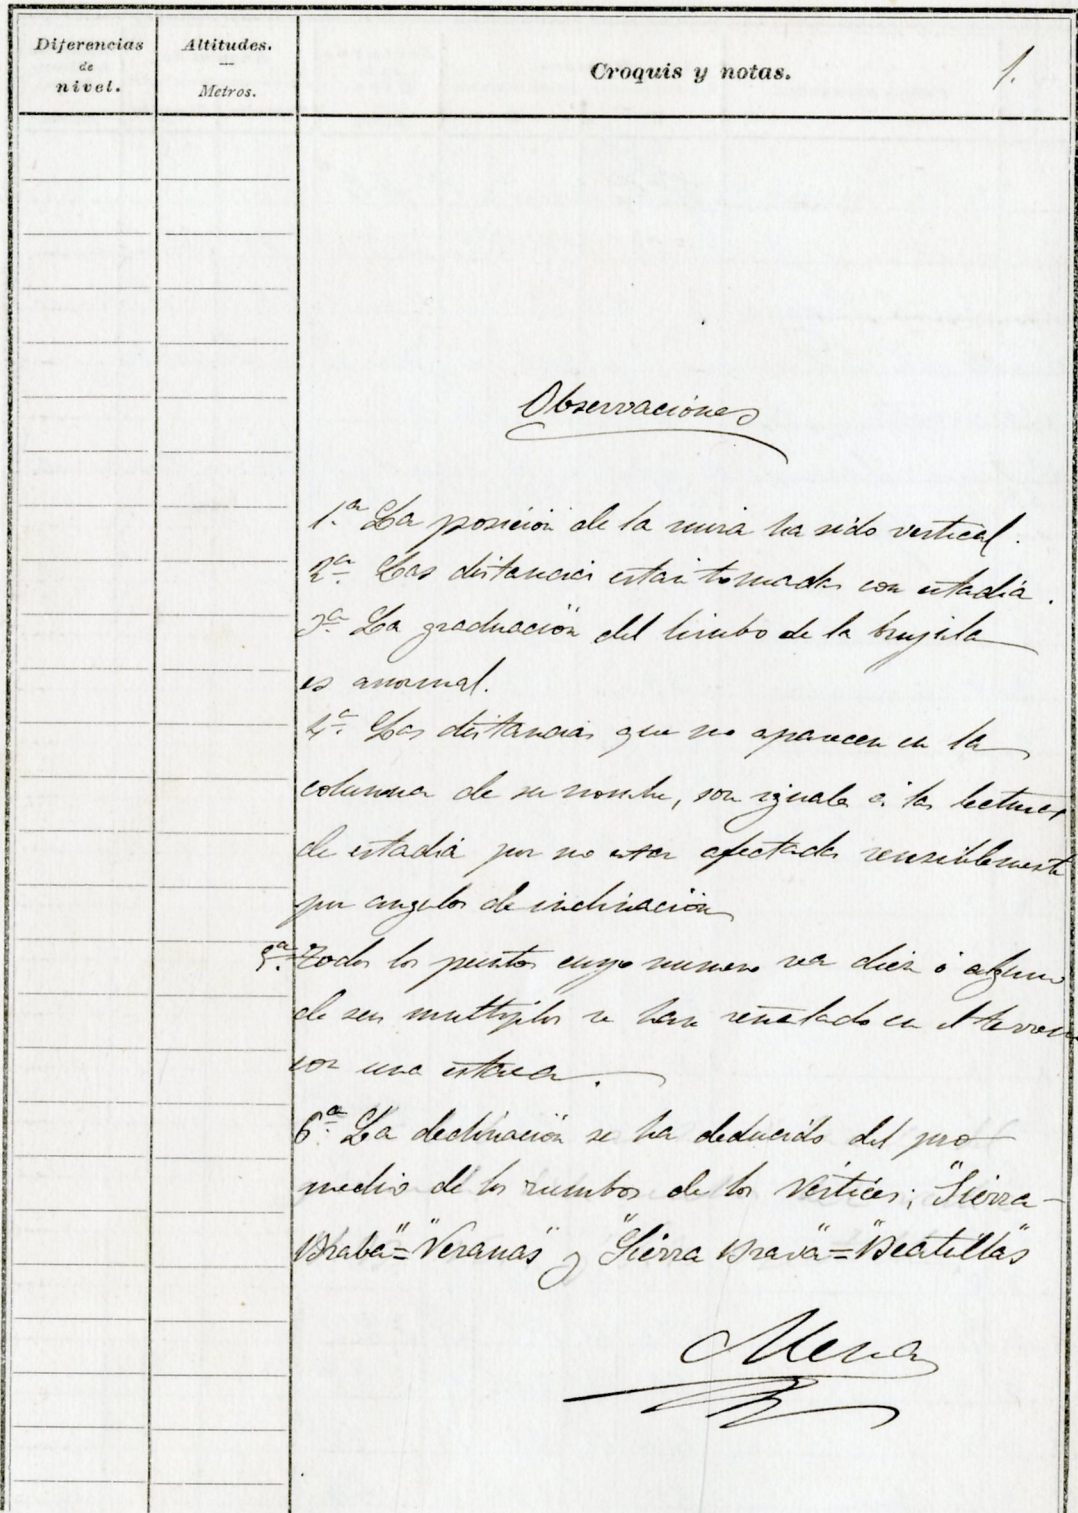 Diferencias
de
nivel.
Altitudes.
Metros.
Croquis y notas.
1.
Observaciones
1.ª La posición de la mira ha sido vertical.
2.ª Las distancias están tomadas con estadia.
3.ª La graduación del limbo de la brujula
es anormal.
4.ª Las distancias que no aparecen en la
columna de su nombre, son iguales á las lecturas
de estadia por no estar afectadas sensiblemente
por angulos de inclinación
5.ª Todos los puntos cuyo numero sea diez ó alguno
de sus multiplos se han señalado en el terreno
con una estaca.
6.ª La declinación se ha deducido del pro
medio de los rumbos de los Vértices; "Sierra-
Braba"="Veranas" y "Sierra Brava"="Beatillas"
Mena